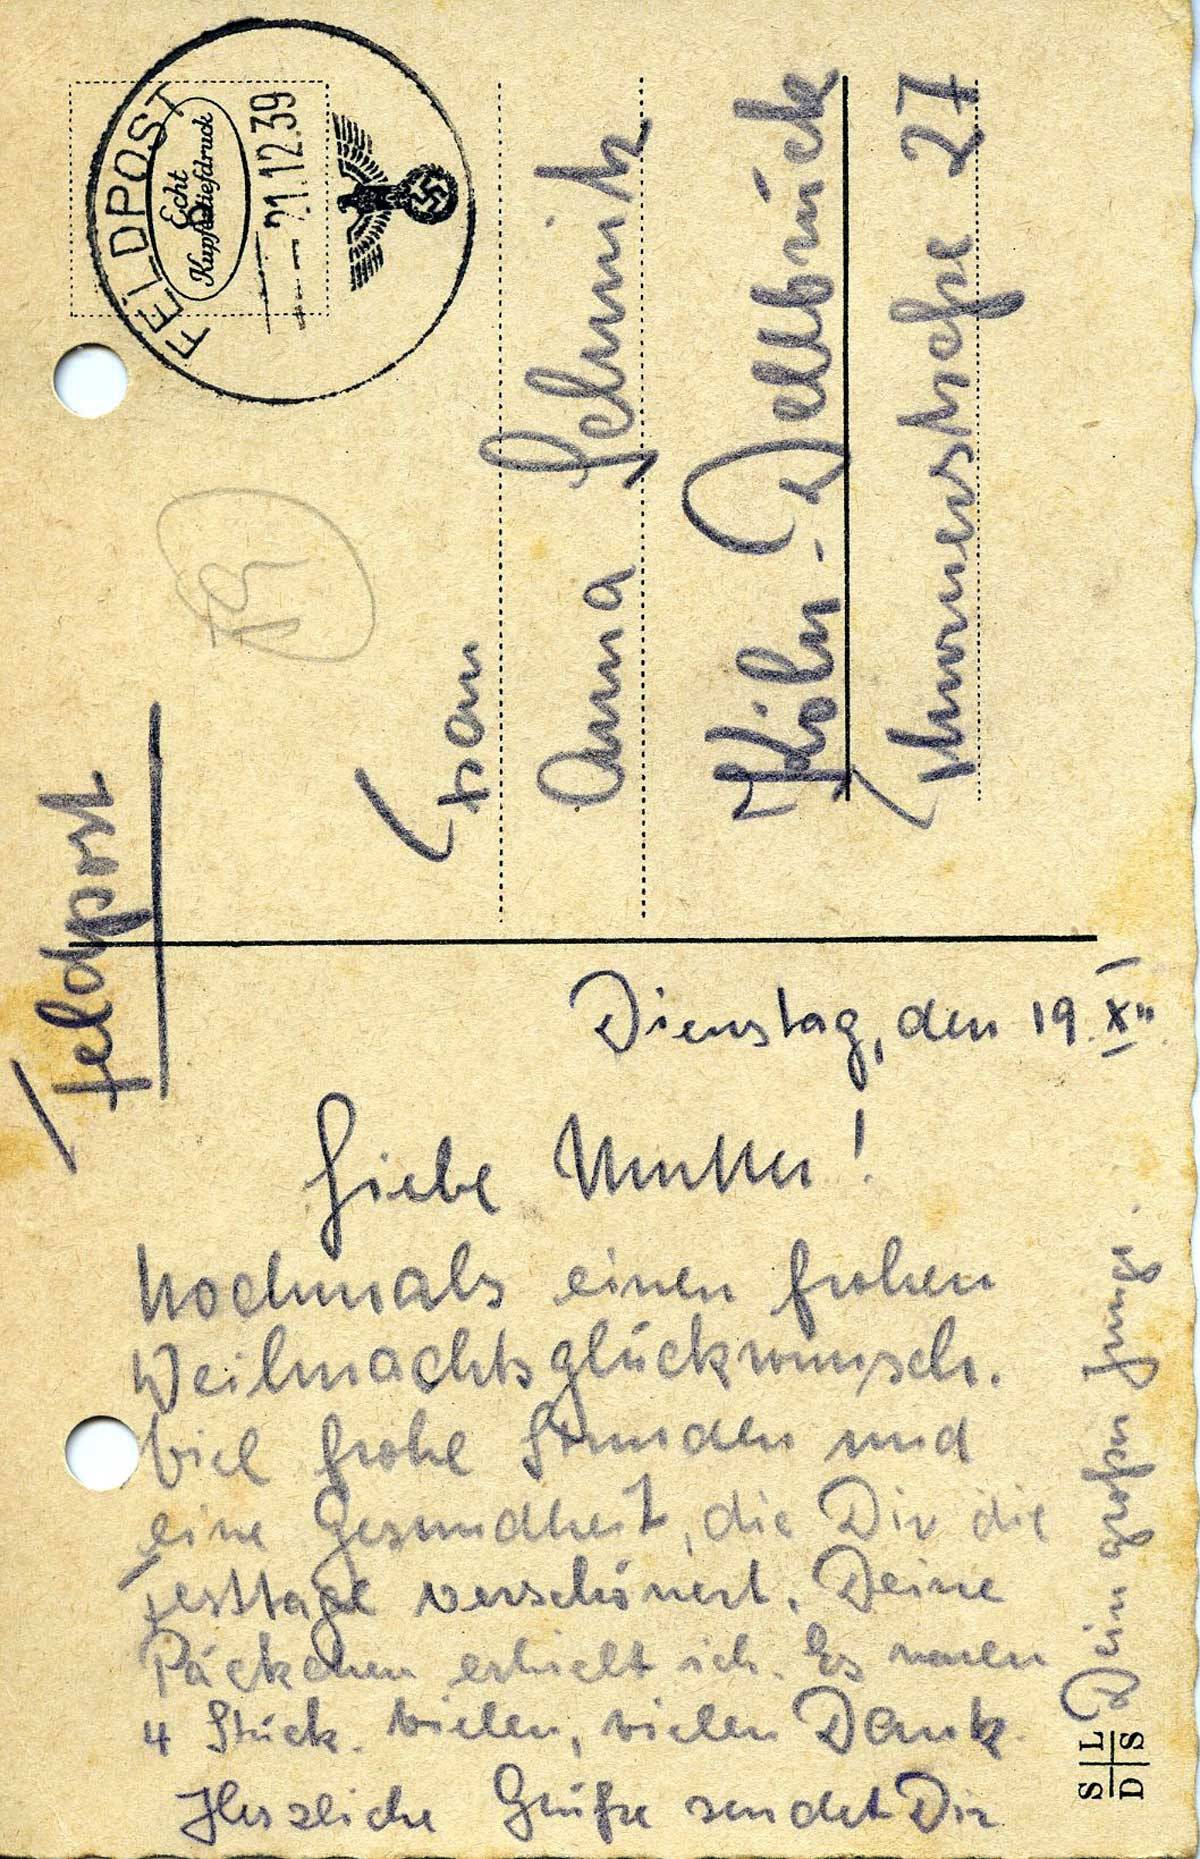 FELDPOST
Echt
Kupfertiefdruck
21.12.39
Feldpost
Frau
Anna Schmitz
Köln-Dellbrück
Thurnerstraße 27
Dienstag, den 19. XII
Liebe Mutter!
Nochmals einen frohen
Weihnachtsglückwunsch.
Viel frohe Stunden und
eine Gesundheit, die Dir die
Festtage verschönert. Deine
Päckchen erhielt ich. Es waren
4 Stück. Vielen, vielen Dank.
Herzliche Grüße sendet Dir
Dein großer Junge.
S L
D S